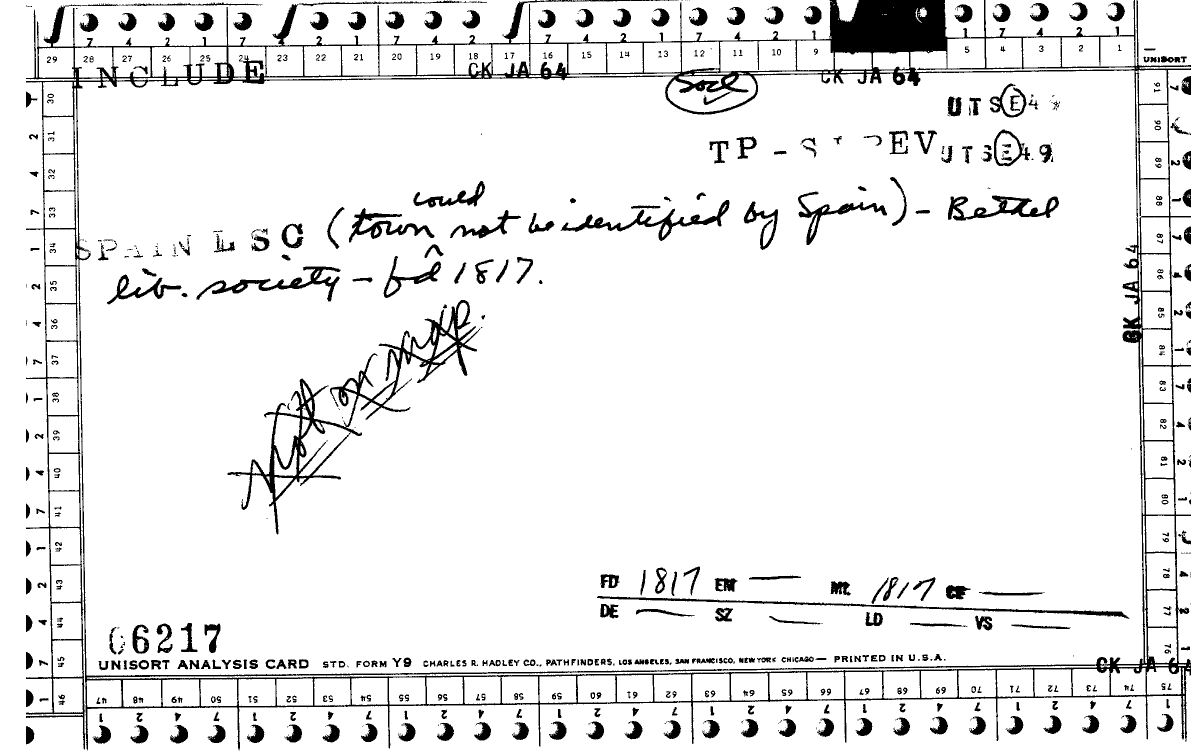 7 4 2 1 7 4 2 1 7 4 2 1 7 4 2 1 7 4 2 1 7 4 2 1
29 28 27 26 25 24 23 22 21 20 19 18 17 16 15 14 13 12 11 10 9 5 4 3 2 1
UNISORT
INCLUDE CK JA 64 CK JA 64
Socl
UTSE49
TP - S EV UTSE49
could
SPAIN LSC (town not be identified by Spain) - Bethel
lib. society - fd 1817.
Not on map.
CK JA 64
FD 1817 EM — Mt. 1817 CE —
DE — SZ — LD — VS —
06217
UNISORT ANALYSIS CARD STD. FORM Y9 CHARLES R. HADLEY CO., PATHFINDERS, LOS ANGELES, SAN FRANCISCO, NEW YORK CHICAGO — PRINTED IN U.S.A.
CK JA 64
30 31 32 33 34 35 36 37 38 39 40 41 42 43 44 45 46
47 48 49 50 51 52 53 54 55 56 57 58 59 60 61 62 63 64 65 66 67 68 69 70 71 72 73 74 75
76 77 78 79 80 81 82 83 84 85 86 87 88 89 90 91